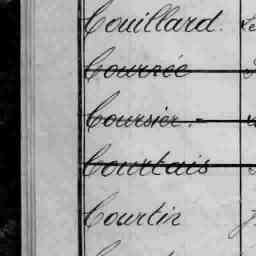 Couillard.
Courzée
Coursier. -
Courtais
Courtin